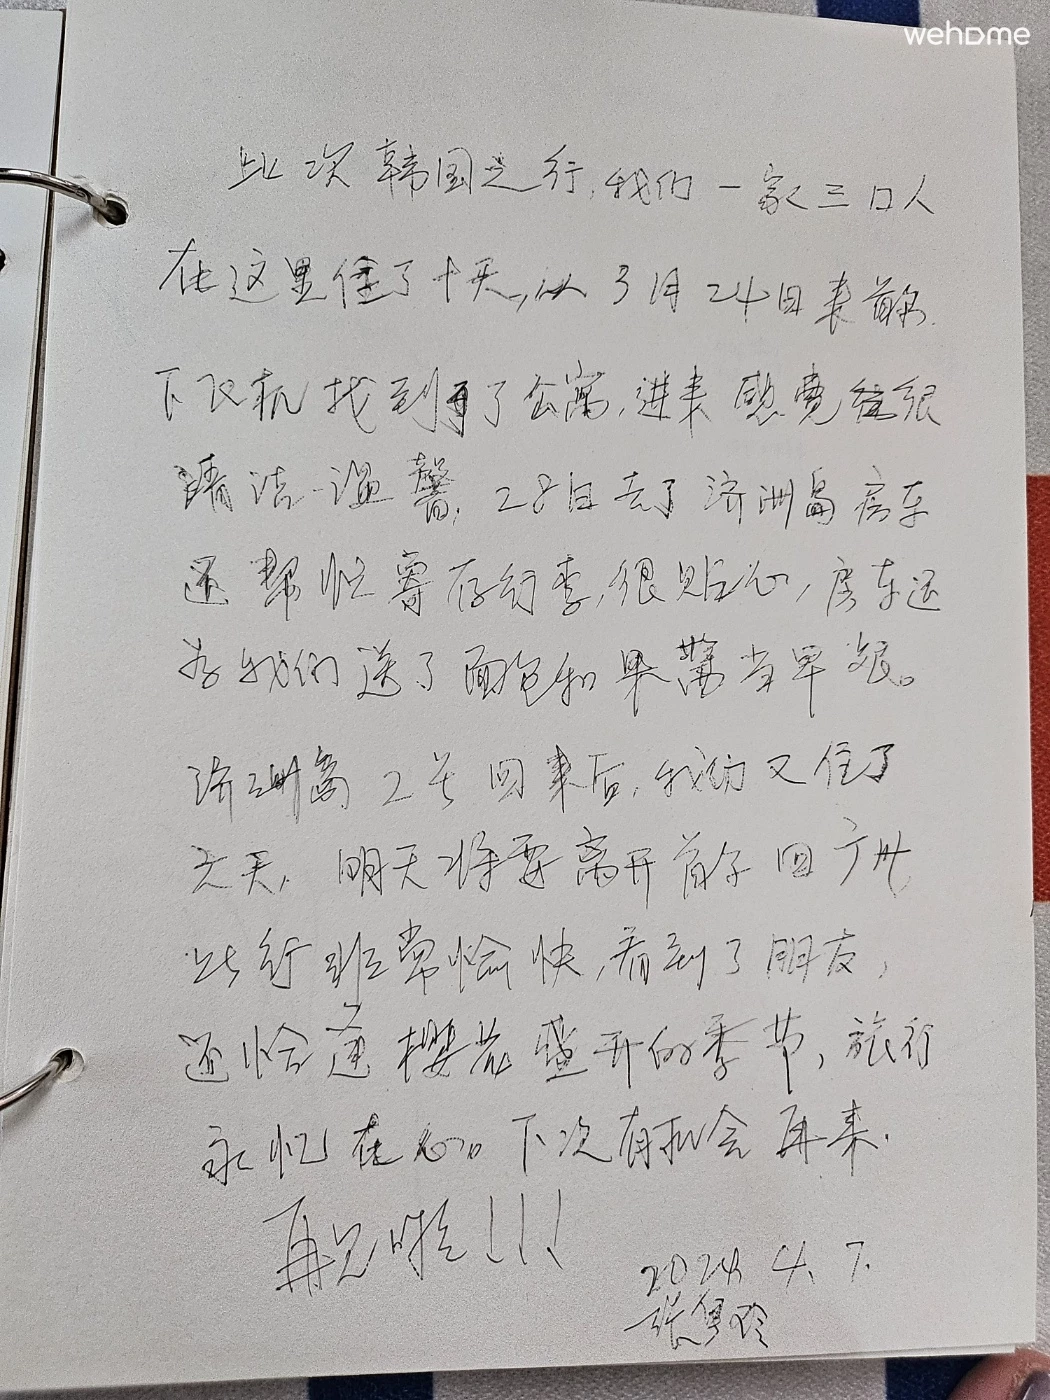 wehome
此次韩国之行,我们一家三口人
在这里住了十天,从3月24日来首尔.
下飞机找到了公寓,进来感觉很
清洁温馨,28日去了济洲岛房东
还帮忙寄存行李,很贴心,房东还
为我们送了面包和果酱当早餐。
济洲岛2号回来后,我们又住了
六天,明天将要离开首尔回广州
此行非常愉快,看到了朋友,
还恰逢樱花盛开的季节,旅行
永忆在心。下次有机会再来.
再见啦!!!
2024.4.7.
张